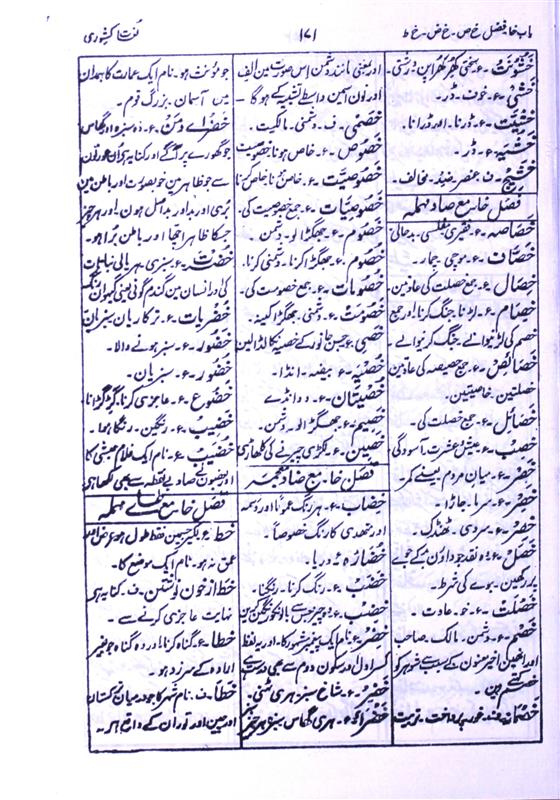 باب خا فصل خ ص ۔ خ ض ۔ خ ط
۱۷۱
لغت کشوری
خُشُونَت ۔ ع ۔ سختی کھرکھراپن درشتی ۔
خَشْی ۔ ع ۔ خوف ۔ ڈر ۔
خَشْیَت ۔ ع ۔ ڈرنا ۔ اور ڈرانا ۔
خَشْیَہ ۔ ع ۔ ڈر ۔
خَشِیج ۔ ف ۔ عنصر ضد ۔ مخالف ۔
فصل خا مع صاد مہملہ
خَصَاصَہ ۔ ع ۔ فقیری مفلسی بدحالی
خَصَّاف ۔ ع ۔ موچی چمار ۔
خِصَال ۔ ع ۔ جمع خصلت کی عادتیں
خِصَام ۔ ع ۔ لڑنا ۔ جنگ کرنا اور جمع
خصم کی لڑنیوالے جنگ کرنیوالے ۔
خَصَائِص ۔ ع ۔ جمع خصیصہ کی عادتیں
خصلتیں ۔ خاصیتیں ۔
خَصَائِل ۔ ع ۔ جمع خصلت کی ۔
خِصْب ۔ ع ۔ عیش عشرت آسودگی
خَصْر ۔ ع ۔ میان مردم یعنے کمر ۔
خَصِر ۔ ع ۔ سرما ۔ جاڑا ۔
خَصَر ۔ ع ۔ سردی ۔ ٹھنڈک ۔
خَصْل ۔ ع ۔ وہ نقد جو داؤں جوئے
پر رکھیں ۔ جوئے کی شرط ۔
خَصْلَت ۔ ع ۔ خو ۔ عادت ۔
خَصْم ۔ ع ۔ دشمن ۔ مالک ۔ صاحب
اور انھیں اخیر معنون کے سبب سے شوہر کو
خصم کہتے ہیں ۔
اور بمعنی مانند دشمن اس صورت میں الف
اور نون اسمین واسطے تشبیہ کے ہوگا ۔
خَصْمِی ۔ ف ۔ دشمنی ۔ مالکیت ۔
خُصُوص ۔ ع ۔ خاص ہونا خصوصیت
خُصُوصِیَّت ۔ ع ۔ خاص ہونا خاص کرنا
خُصُوصِیَّات ۔ ع ۔ جمع خصوصیت کی ۔
خَصُوم ۔ ع ۔ جھگڑالو ۔ دشمن ۔
خُصُوم ۔ ع ۔ جھگڑا کرنا ۔ دشمنی کرنا ۔
خُصُومَات ۔ ع ۔ جمع خصومت کی ۔
خُصُومَت ۔ ع ۔ دشمنی ۔ جھگڑا کینہ ۔
خَصِی ۔ ع ۔ جس جانور کے خصیہ نکالڈالیں
خُصْیَہ ۔ ع ۔ بیضہ ۔ انڈا ۔
خُصْیَتَان ۔ ع ۔ دو انڈے
خَصِیم ۔ ع ۔ جھگڑالو ۔ دشمن ۔
خَصِین ۔ ع ۔ لکڑی چیرنے کی کلھاڑی
فصل خا مع ضاد معجمہ
خِضَاب ۔ ع ۔ ہر رنگ عموماً اور وسمہ
اور مہندی کا رنگ خصوصاً ۔
خُضَارَہ ۔ ع ۔ دریا ۔
خَضْب ۔ ع ۔ رنگ کرنا ۔ رنگنا ۔
خَضِر ۔ ع ۔ شاخ سبز ہری ٹہنی ۔
خَضْرَا ۔ ع ۔ ہری گھاس سبز ہر چیز
جو مؤنث ہو ۔ نام ایک عمارت کا ہمدان
میں آسمان ۔ بزرگ قوم ۔
خَضْرَاے دَمَن ۔ ع ۔ وہ سبزہ اور گھاس
جو گھورے پر اگے اور کنایہ ہے اُن عورتوں
سے جو ظاہر میں خوبصورت اور باطن میں
بُری اور بد اور بد اصل ہوں ۔ اور ہر چیز
جسکا ظاہر اچھا اور باطن برا ہو ۔
خُضْرَت ۔ ع ۔ سبزی ۔ ہریالی نباتات
کی اور انسان میں گندم گونی یعنی گیہواں رنگ
خُضْرِیَات ۔ ع ۔ ترکاریاں سبزیاں
خَضُور ۔ ع ۔ سبز ہونے والا ۔
خُضُور ۔ ع ۔ سبزیاں ۔
خُضُوع ۔ ع ۔ عاجزی کرنا ۔ گڑگڑانا
خَضِیب ۔ ع ۔ رنگین ۔ رنگا ہوا ۔
خُضَیب ۔ ع ۔ نام ایک غلام حبشی کا
فصل خا مع طاے مہملہ
خط ۔ ع ۔ لکیر جسمیں فقط طول ہو عرض اور
عمق نہ ہو ۔ نام ایک موضع کا ۔
خط از خون نوشتن ۔ ف ۔ کنایہ ہے
نہایت عاجزی کرنے سے ۔
خطا ۔ ع ۔ گناہ کرنا ۔ اور وہ گناہ جو بغیر
ارادہ کے سرزد ہو ۔
خطا ۔ ف ۔ نام شہر کا جو درمیان ترکستان
اور چین اور توران کے واقع ہے ۔